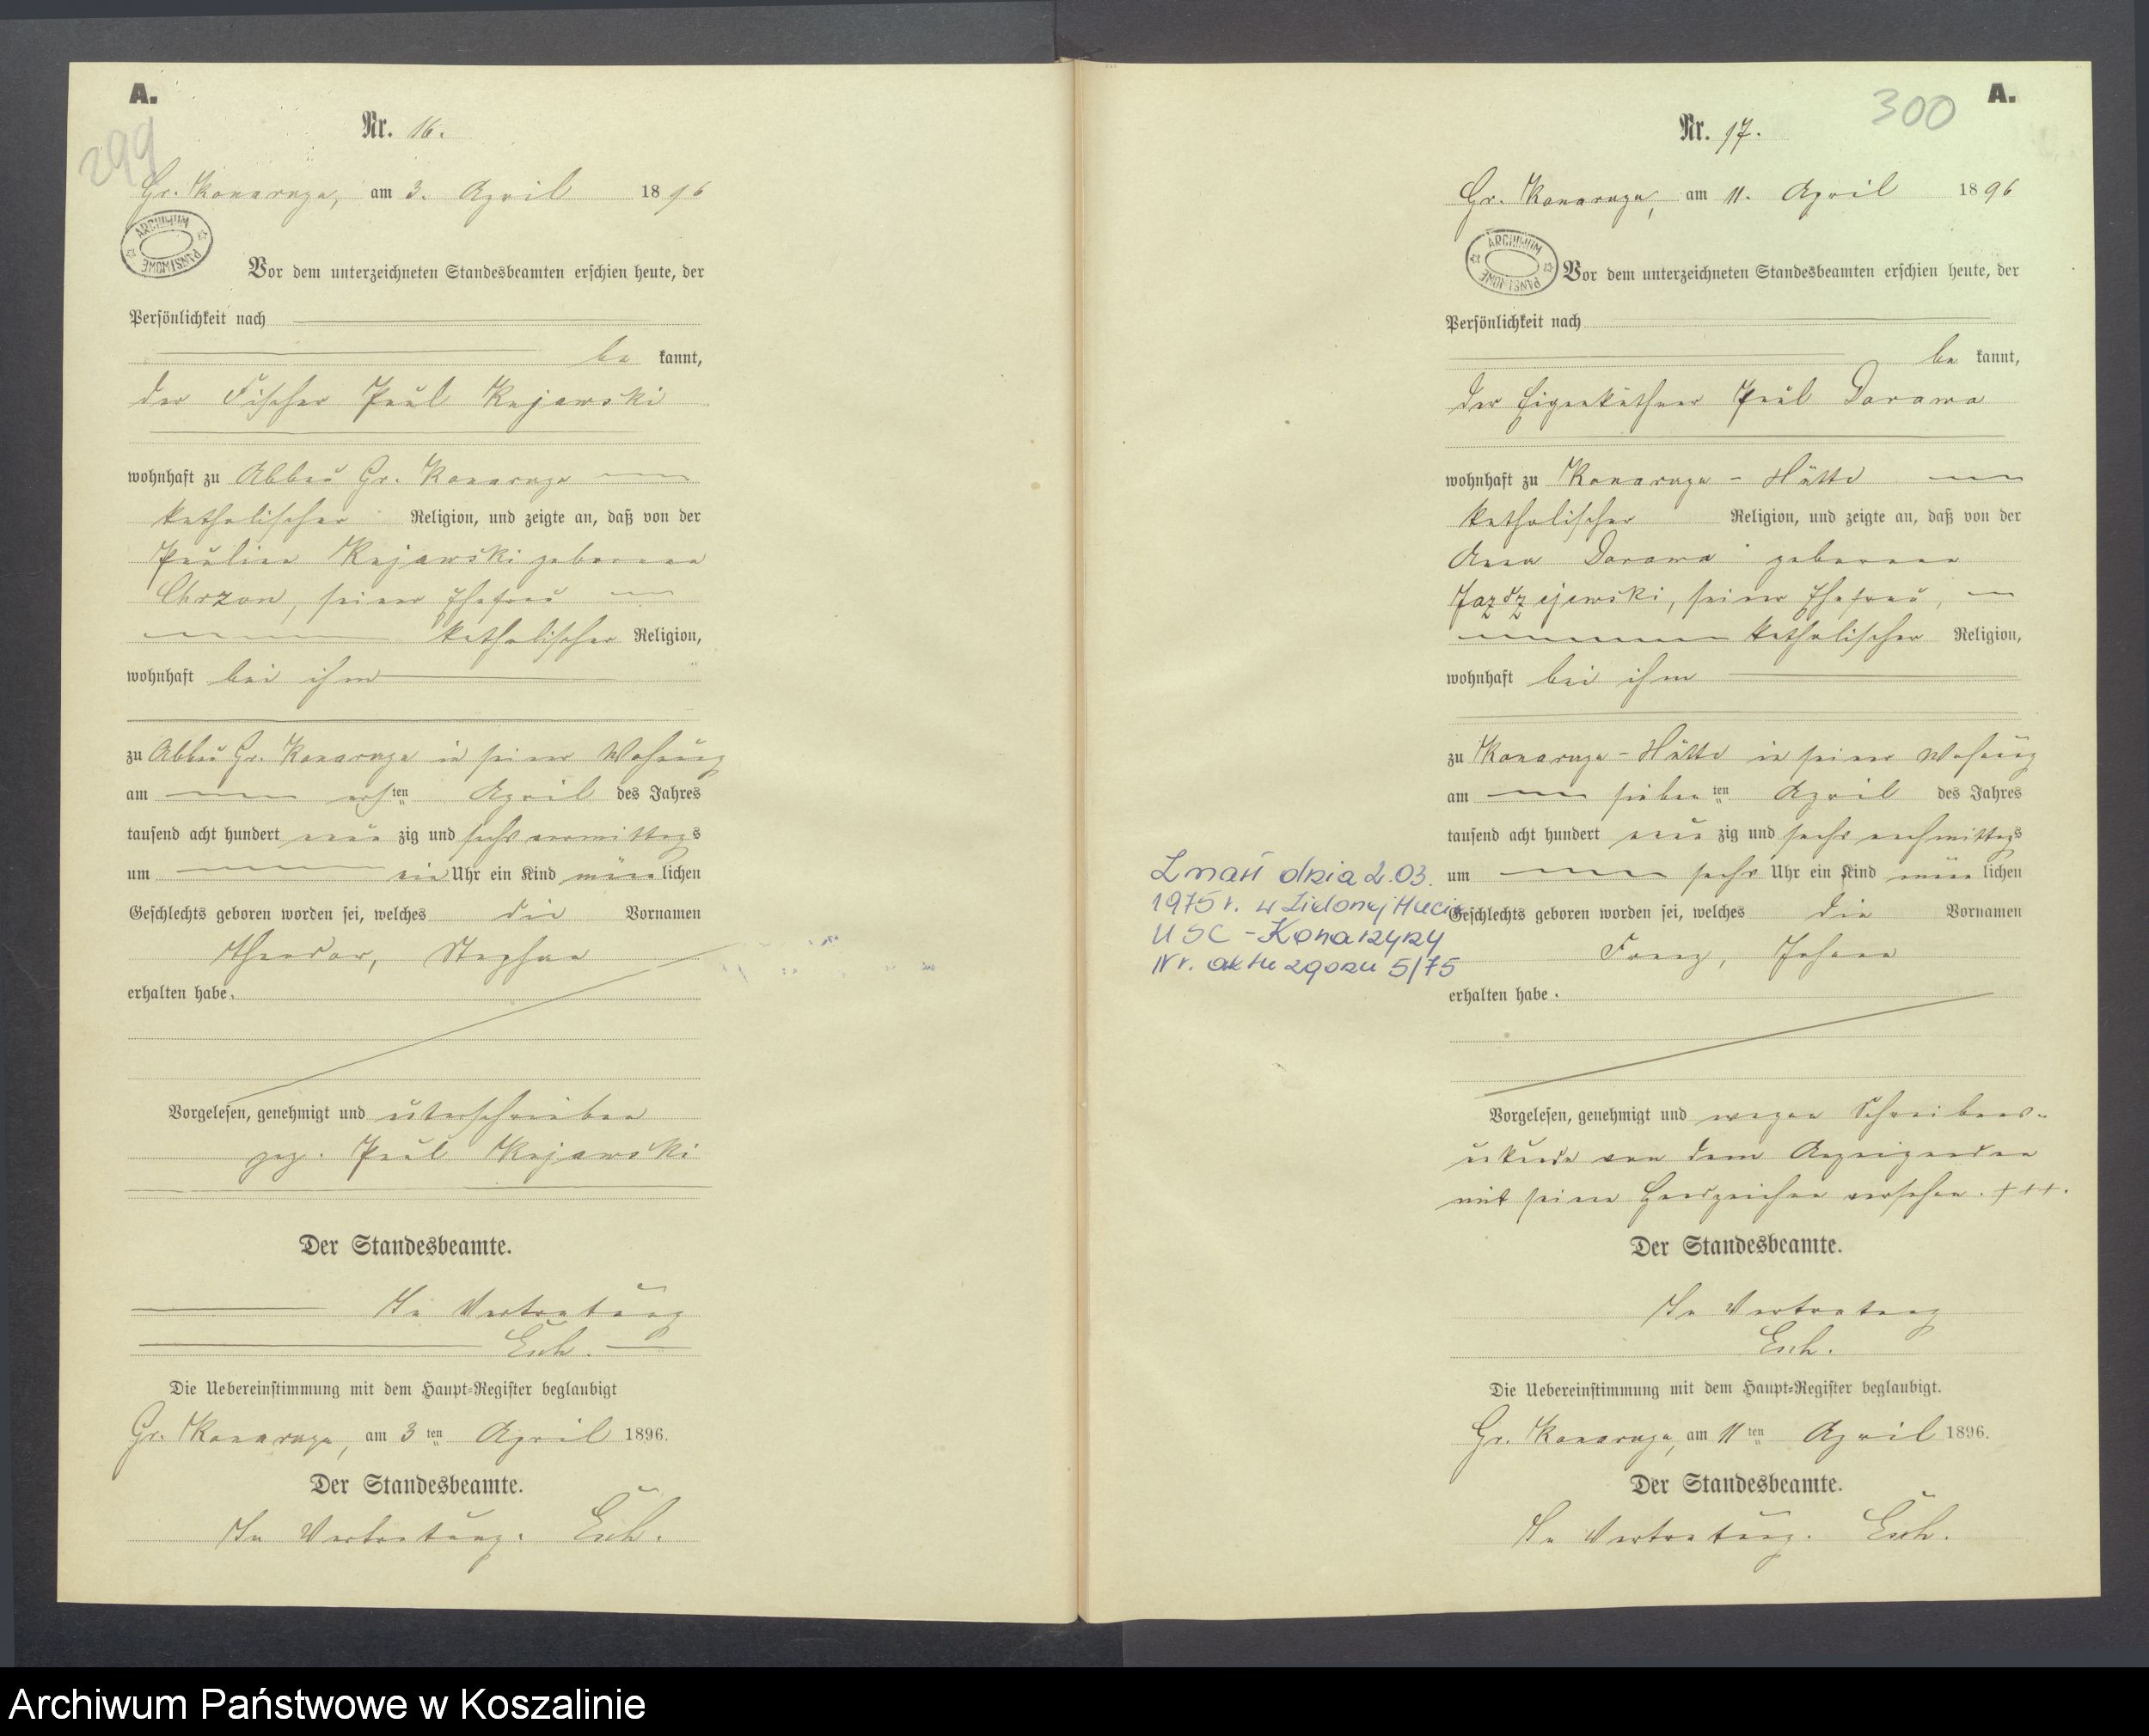 A.
299
Nr. 16.
Gr. Konarzyn, am 3. April 1896
ARCHIWUM PAŃSTWOWE
Vor dem unterzeichneten Standesbeamten erschien heute, der
Persönlichkeit nach
be kannt,
der Fischer Paul Kujawski
wohnhaft zu Abbau Gr. Konarzyn
katholischer Religion, und zeigte an, daß von der
Pauline Kujawski geborenen
Chrzon, seiner Ehefrau
katholischer Religion,
wohnhaft bei ihm
zu Abbau Gr. Konarzyn in seiner Wohnung
am ersten April des Jahres
tausend acht hundert neun zig und sechs vormittags
um ein Uhr ein Kind männlichen
Geschlechts geboren worden sei, welches die Vornamen
Theodor, Stephan
erhalten habe.
Vorgelesen, genehmigt und unterschrieben
gez. Paul Kujawski
Der Standesbeamte.
In Vertretung
Esch.
Die Uebereinstimmung mit dem Haupt-Register beglaubigt
Gr. Konarzyn, am 3 ten April 1896.
Der Standesbeamte.
In Vertretung. Esch.
A.
300
Nr. 17.
Gr. Konarzyn, am 11. April 1896
ARCHIWUM PAŃSTWOWE
Vor dem unterzeichneten Standesbeamten erschien heute, der
Persönlichkeit nach
be kannt,
der Eigenkäthner Paul Darawa
wohnhaft zu Konarzyn-Hütte
katholischer Religion, und zeigte an, daß von der
Anna Darawa geborenen
Jazdzejewski, seiner Ehefrau,
katholischer Religion,
wohnhaft bei ihm
zu Konarzyn-Hütte in seiner Wohnung
am siebenten April des Jahres
tausend acht hundert neun zig und sechs nachmittags
um sechs Uhr ein Kind männlichen
Geschlechts geboren worden sei, welches die Vornamen
Franz, Johann
erhalten habe.
Zmarł dnia 2.03.
1975 r. w Zielonej Hucie
USC - Konarzyny
Nr. aktu zgonu 5/75
Vorgelesen, genehmigt und wegen Schreibens-
unkunde von dem Anzeigenden
mit seinem Handzeichen versehen. +++.
Der Standesbeamte.
In Vertretung
Esch.
Die Uebereinstimmung mit dem Haupt-Register beglaubigt.
Gr. Konarzyn, am 11 ten April 1896.
Der Standesbeamte.
In Vertretung. Esch.
Archiwum Państwowe w Koszalinie